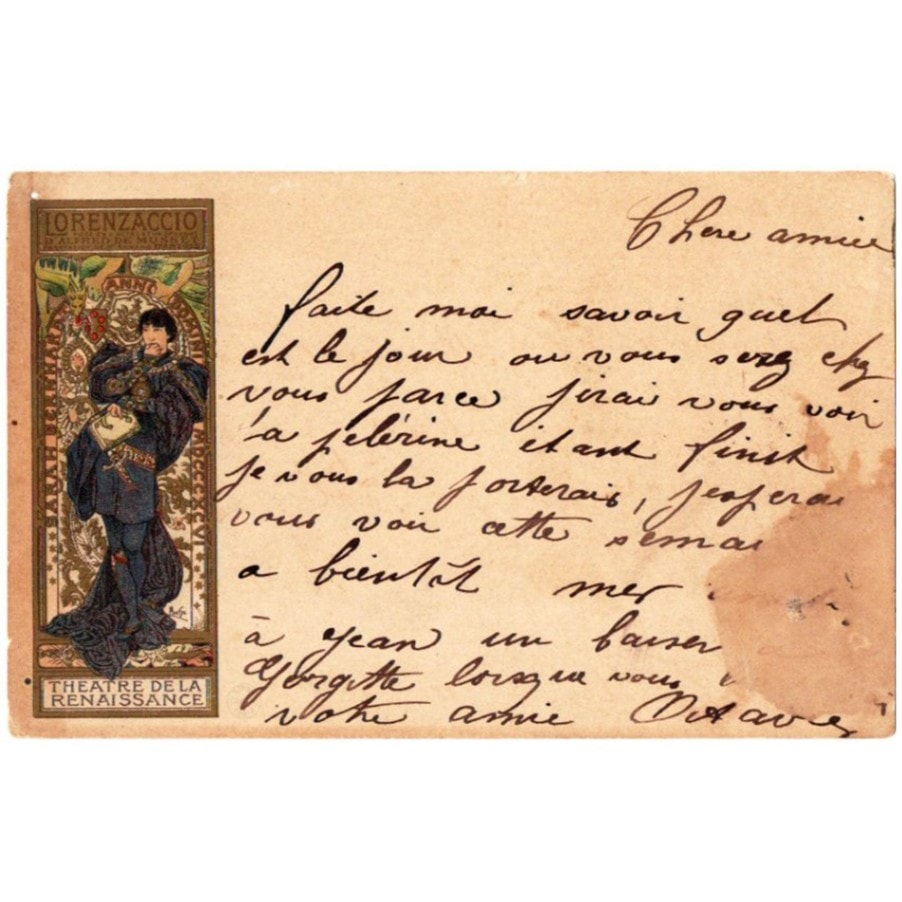 LORENZACCIO
D'ALFRED DE MUSSET
SARAH BERNHARDT
ANNO DOMINI MDCCCXCVI
Mucha
THEATRE DE LA
RENAISSANCE
Chere amie
faite moi savoir quel
est le jour ou vous serez chez
vous parce jirai vous voir
a pelèrine etant finit
je vous la porterais, jesperai
vous voir cette semai
a bientôt mer
à Jean un baiser
Gorgette lorsque vous
votre amie Octavie